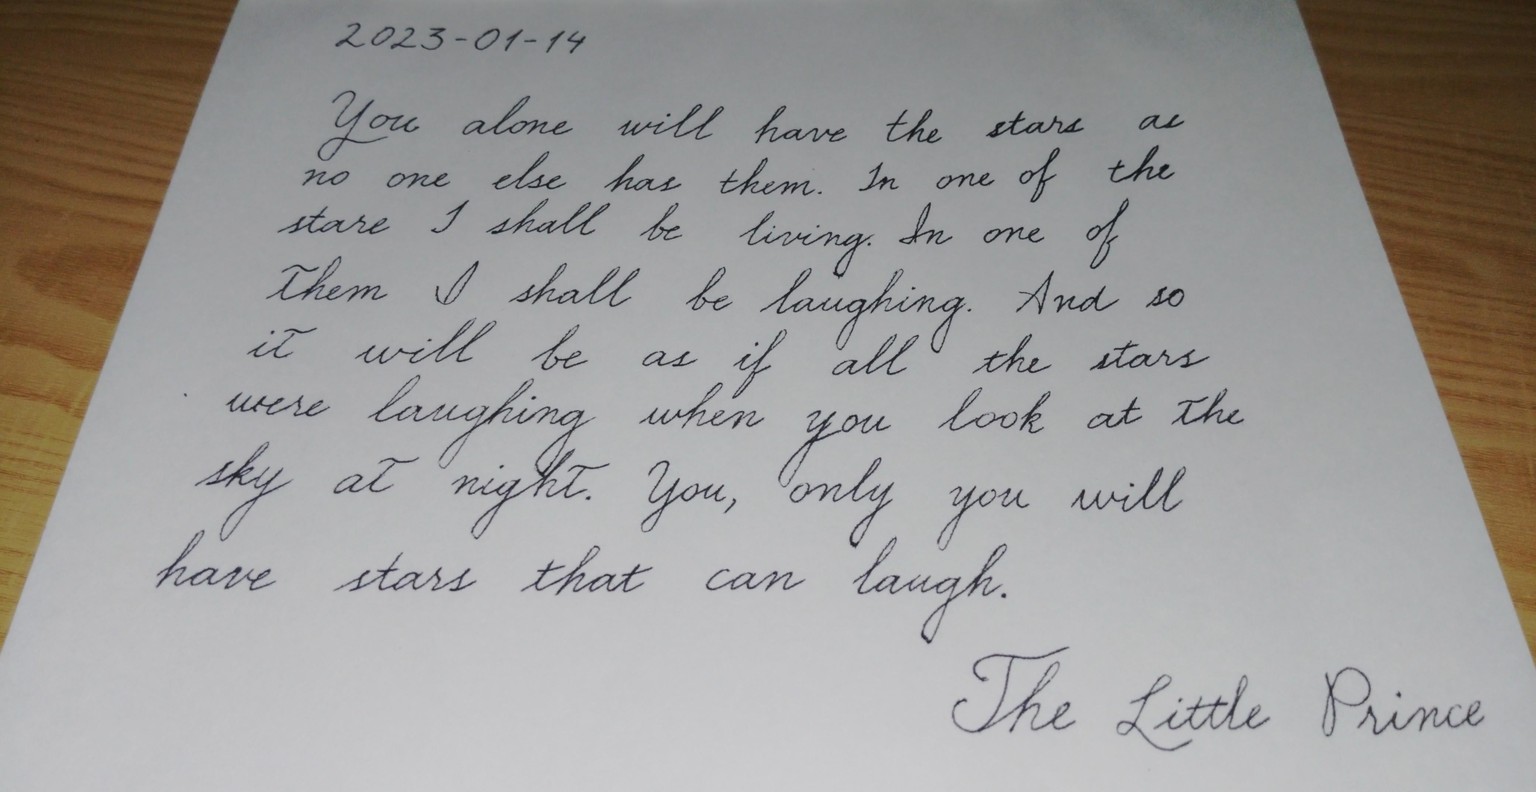 2023-01-14
You alone will have the stars as
no one else has them. In one of the
stars I shall be living. In one of
them I shall be laughing. And so
it will be as if all the stars
were laughing when you look at the
sky at night. You, only you will
have stars that can laugh.
The Little Prince